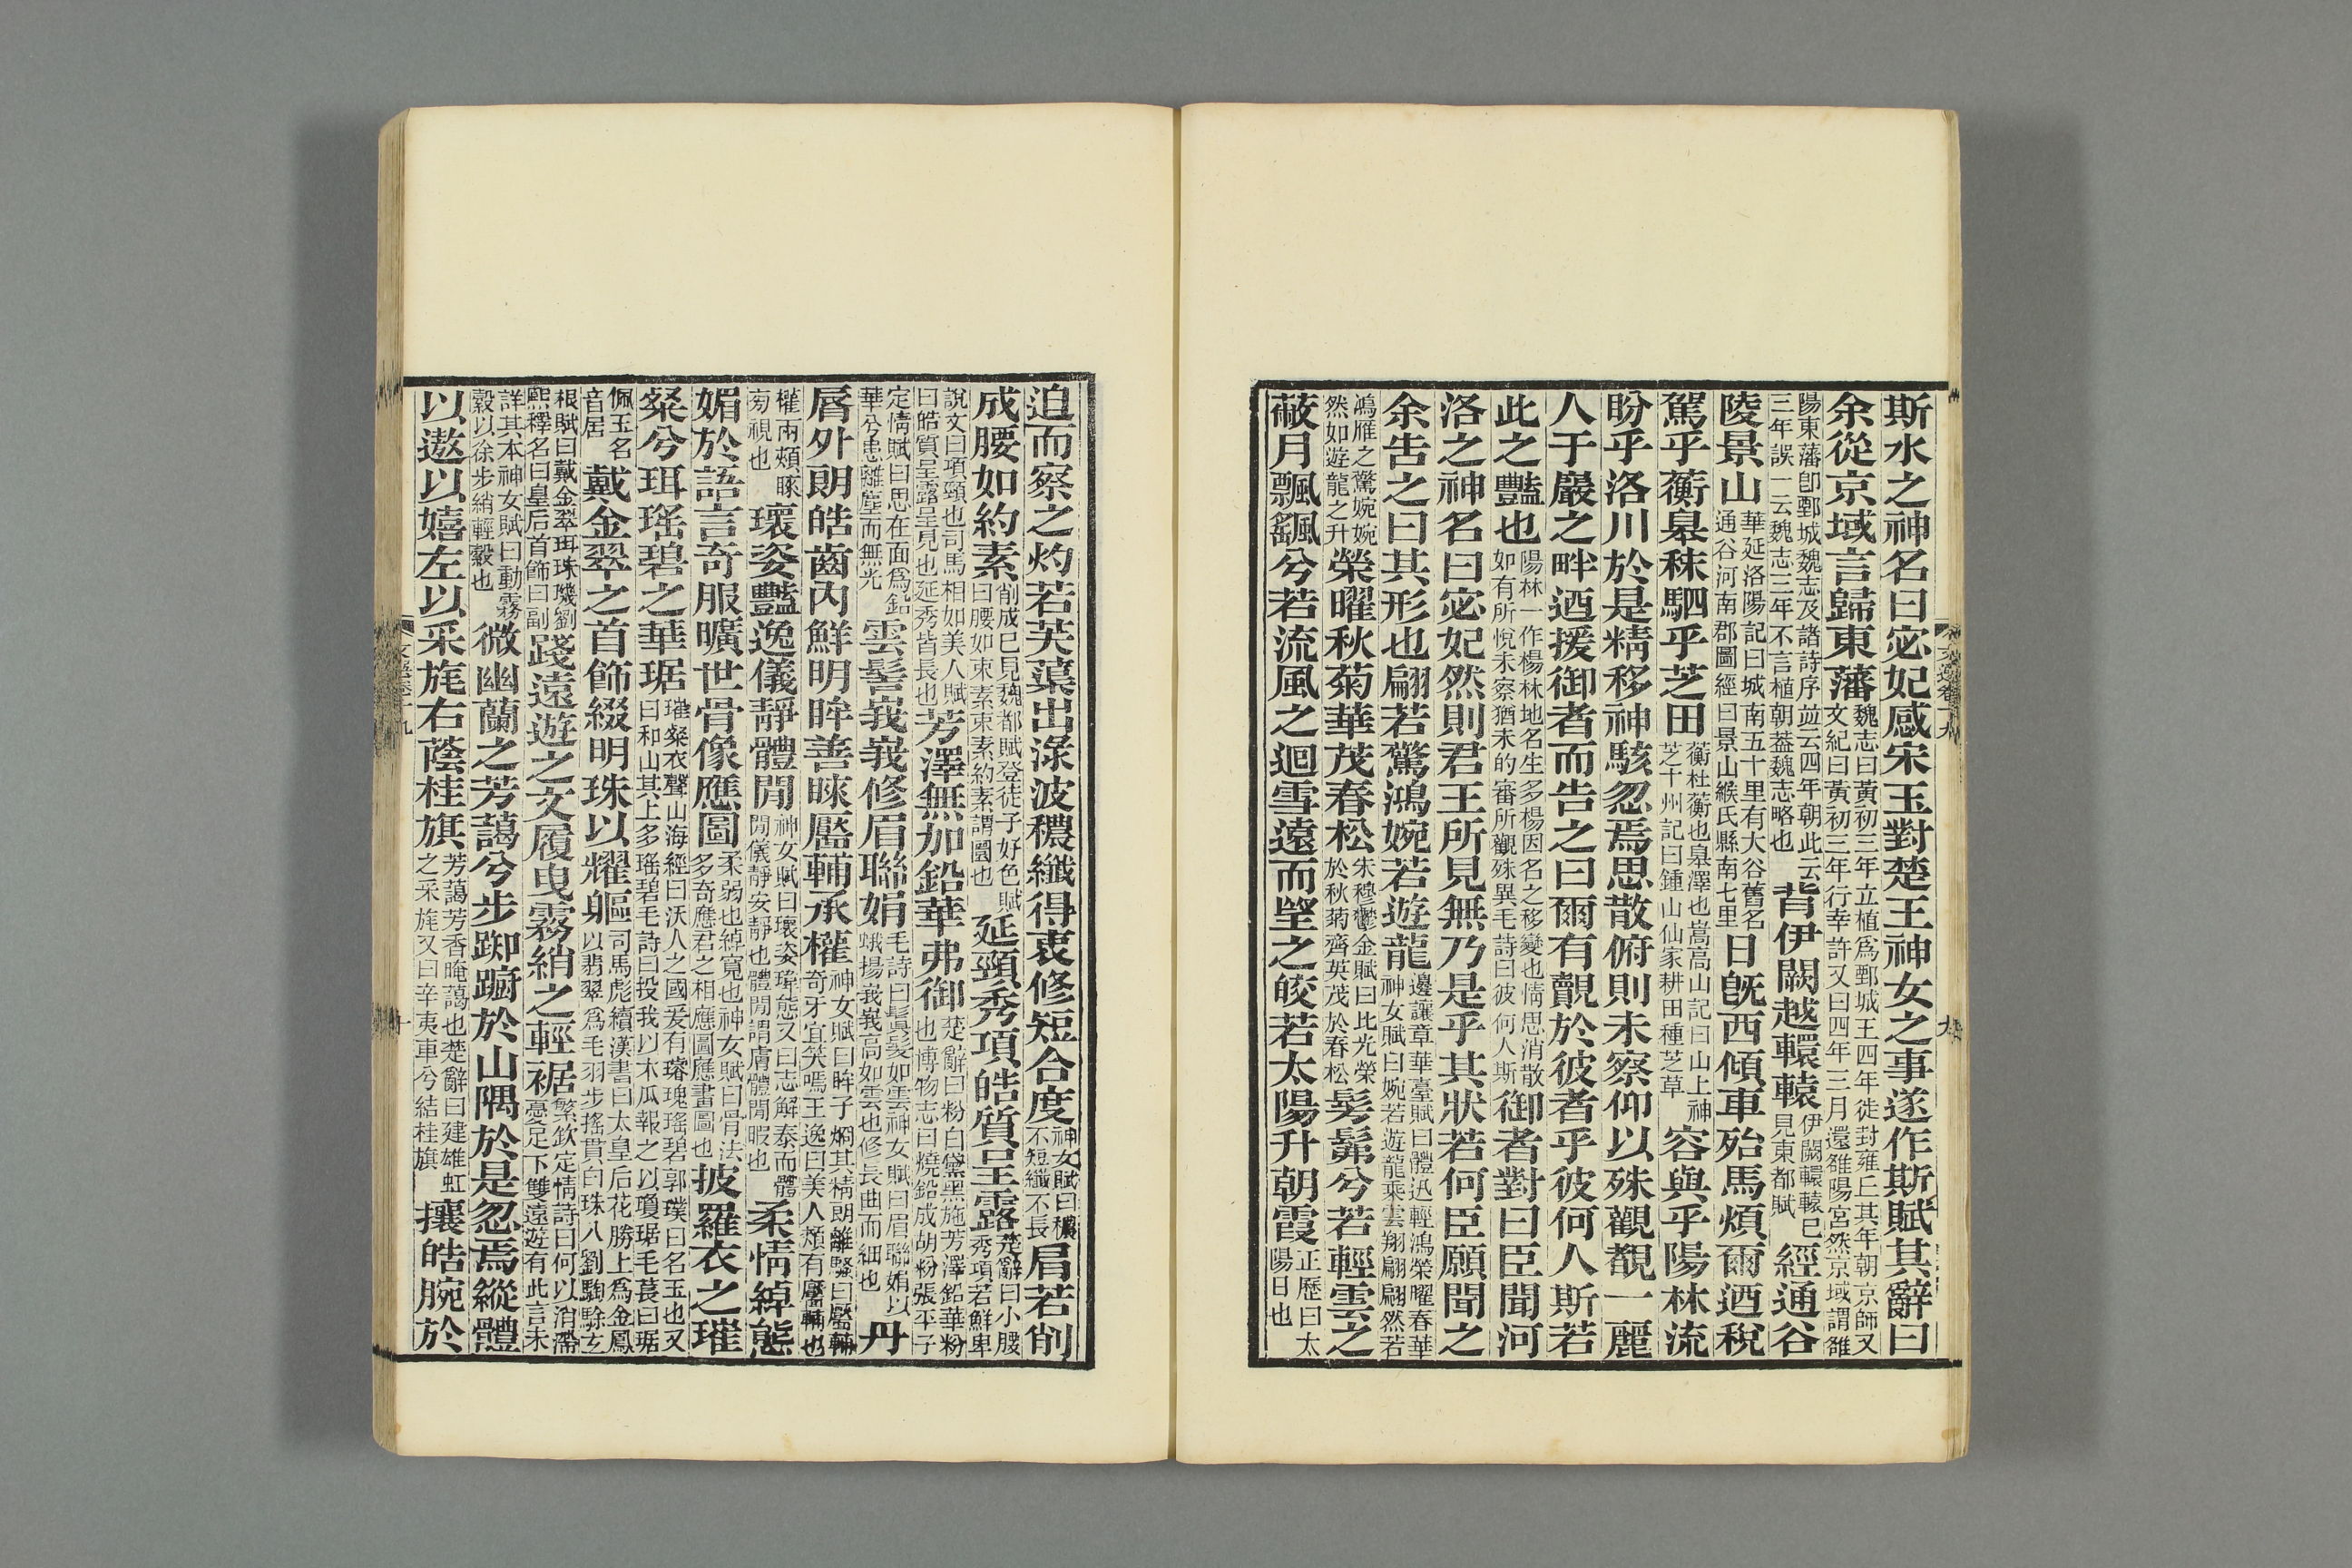 斯水之神名曰宓妃感宋玉對楚王神女之事遂作斯賦其辭曰
余從京域言歸東藩魏志曰黃初三年立植爲鄄城王四年徙封雍丘其年朝京師又文紀曰黃初三年行幸許又曰四年三月還雒陽宮然京域謂雒
陽東藩卽鄄城魏志及諸詩序竝云四年朝此云三年誤一云魏志三年不言植朝葢魏志略也背伊闕越轘轅伊闕轘轅已見東都賦經通谷
陵景山華延洛陽記曰城南五十里有大谷舊名通谷河南郡圖經曰景山緱氏縣南七里日旣西傾車殆馬煩爾迺稅
駕乎蘅皋秣駟乎芝田蘅杜蘅也皋澤也嵩高山記曰山上神芝十州記曰鍾山仙家耕田種芝草容與乎陽林流
盼乎洛川於是精移神駭忽焉思散俯則未察仰以殊觀覩一麗
人于巖之畔迺援御者而告之曰爾有覿於彼者乎彼何人斯若
此之豔也陽林一作楊林地名生多楊因名之移變也情思消散如有所悅未察猶未的審所觀殊異毛詩曰彼何人斯御者對曰臣聞河
洛之神名曰宓妃然則君王所見無乃是乎其狀若何臣願聞之
余告之曰其形也翩若驚鴻婉若遊龍邊讓章華臺賦曰體迅輕鴻榮曜春華神女賦曰婉若遊龍乘雲翔翩翩然若
鴻雁之驚婉婉然如遊龍之升榮曜秋菊華茂春松朱穆鬱金賦曰比光榮於秋菊齊英茂於春松髣髴兮若輕雲之
蔽月飄颻兮若流風之迴雪遠而望之皎若太陽升朝霞正歷曰太陽日也
迫而察之灼若芙蕖出淥波穠纖得衷修短合度神女賦曰穠不短纖不長肩若削
成腰如約素削成已見魏都賦登徒子好色賦曰腰如束素束素約素謂圜也延頸秀項皓質呈露楚辭曰小腰秀項若鮮卑
說文曰項頸也司馬相如美人賦曰皓質呈露呈見也延秀皆長也芳澤無加鉛華弗御楚辭曰粉白黛黑施芳澤鉛華粉也博物志曰燒鉛成胡粉張平子
定情賦曰思在面爲鉛華兮患離塵而無光雲髻峩峩修眉聯娟毛詩曰鬒髮如雲神女賦曰眉聯娟以蛾揚峩峩高如雲也修長曲而細也丹
脣外朗皓齒內鮮明眸善睞靨輔承權神女賦曰眸子烱其精朗離騷曰靨輔奇牙宜笑嘕王逸曰美人頰有靨輔也
權兩頰睞旁視也瓌姿豔逸儀靜體閒神女賦曰瓌姿瑋態又曰志解泰而體閒儀靜安靜也體閒謂膚體閒暇也柔情綽態
媚於語言奇服曠世骨像應圖柔弱也綽寬也神女賦曰骨法多奇應君之相應圖應畫圖也披羅衣之璀
粲兮珥瑤碧之華琚璀粲衣聲山海經曰沃人之國爰有璿瑰瑤碧郭璞曰名玉也又曰和山其上多瑤碧毛詩曰投我以木瓜報之以瓊琚毛萇曰琚
佩玉名音居戴金翠之首飾綴明珠以耀軀司馬彪續漢書曰太皇后花勝上爲金鳳以翡翠爲毛羽步搖貫白珠八劉騊駼玄
根賦曰戴金翠珥珠璣劉熙釋名曰皇后首飾曰副踐遠遊之文履曳霧綃之輕裾繁欽定情詩曰何以消滯憂足下雙遠遊有此言未
詳其本神女賦曰動霧縠以徐步綃輕縠也微幽蘭之芳藹兮步踟躕於山隅於是忽焉縱體
以遨以嬉左以采旄右蔭桂旗芳藹芳香晻藹也楚辭曰建雄虹之采旄又曰辛夷車兮結桂旗攘皓腕於